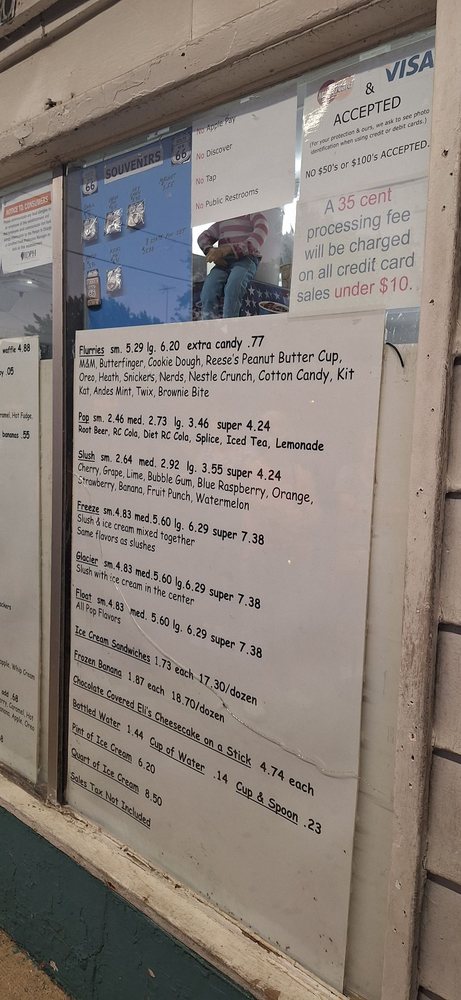 NOTICE TO CONSUMERS
IDPH
waffle 4.88
.05
Hot Fudge,
bananas .55
Whip Cream
add .68
Caramel, Hot
Banana, Apple, Oreo
66
SOUVENIRS
66
No Apple Pay
No Discover
No Tap
No Public Restrooms
& VISA
ACCEPTED
(For your protection & ours, we ask to see photo
identification when using credit or debit cards.)
NO $50's or $100's ACCEPTED.
A 35 cent
processing fee
will be charged
on all credit card
sales under $10.
Flurries sm. 5.29 lg. 6.20 extra candy .77
M&M, Butterfinger, Cookie Dough, Reese's Peanut Butter Cup,
Oreo, Heath, Snickers, Nerds, Nestle Crunch, Cotton Candy, Kit
Kat, Andes Mint, Twix, Brownie Bite
Pop sm. 2.46 med. 2.73 lg. 3.46 super 4.24
Root Beer, RC Cola, Diet RC Cola, Splice, Iced Tea, Lemonade
Slush sm. 2.64 med. 2.92 lg. 3.55 super 4.24
Cherry, Grape, Lime, Bubble Gum, Blue Raspberry, Orange,
Strawberry, Banana, Fruit Punch, Watermelon
Freeze sm.4.83 med.5.60 lg. 6.29 super 7.38
Slush & ice cream mixed together
Same flavors as slushes
Glacier sm.4.83 med.5.60 lg.6.29 super 7.38
Slush with ice cream in the center
Float sm.4.83 med. 5.60 lg. 6.29 super 7.38
All Pop Flavors
Ice Cream Sandwiches 1.73 each 17.30/dozen
Frozen Banana 1.87 each 18.70/dozen
Chocolate Covered Eli's Cheesecake on a Stick 4.74 each
Bottled Water 1.44 Cup of Water .14 Cup & Spoon .23
Pint of Ice Cream 6.20
Quart of Ice Cream 8.50
Sales Tax Not Included